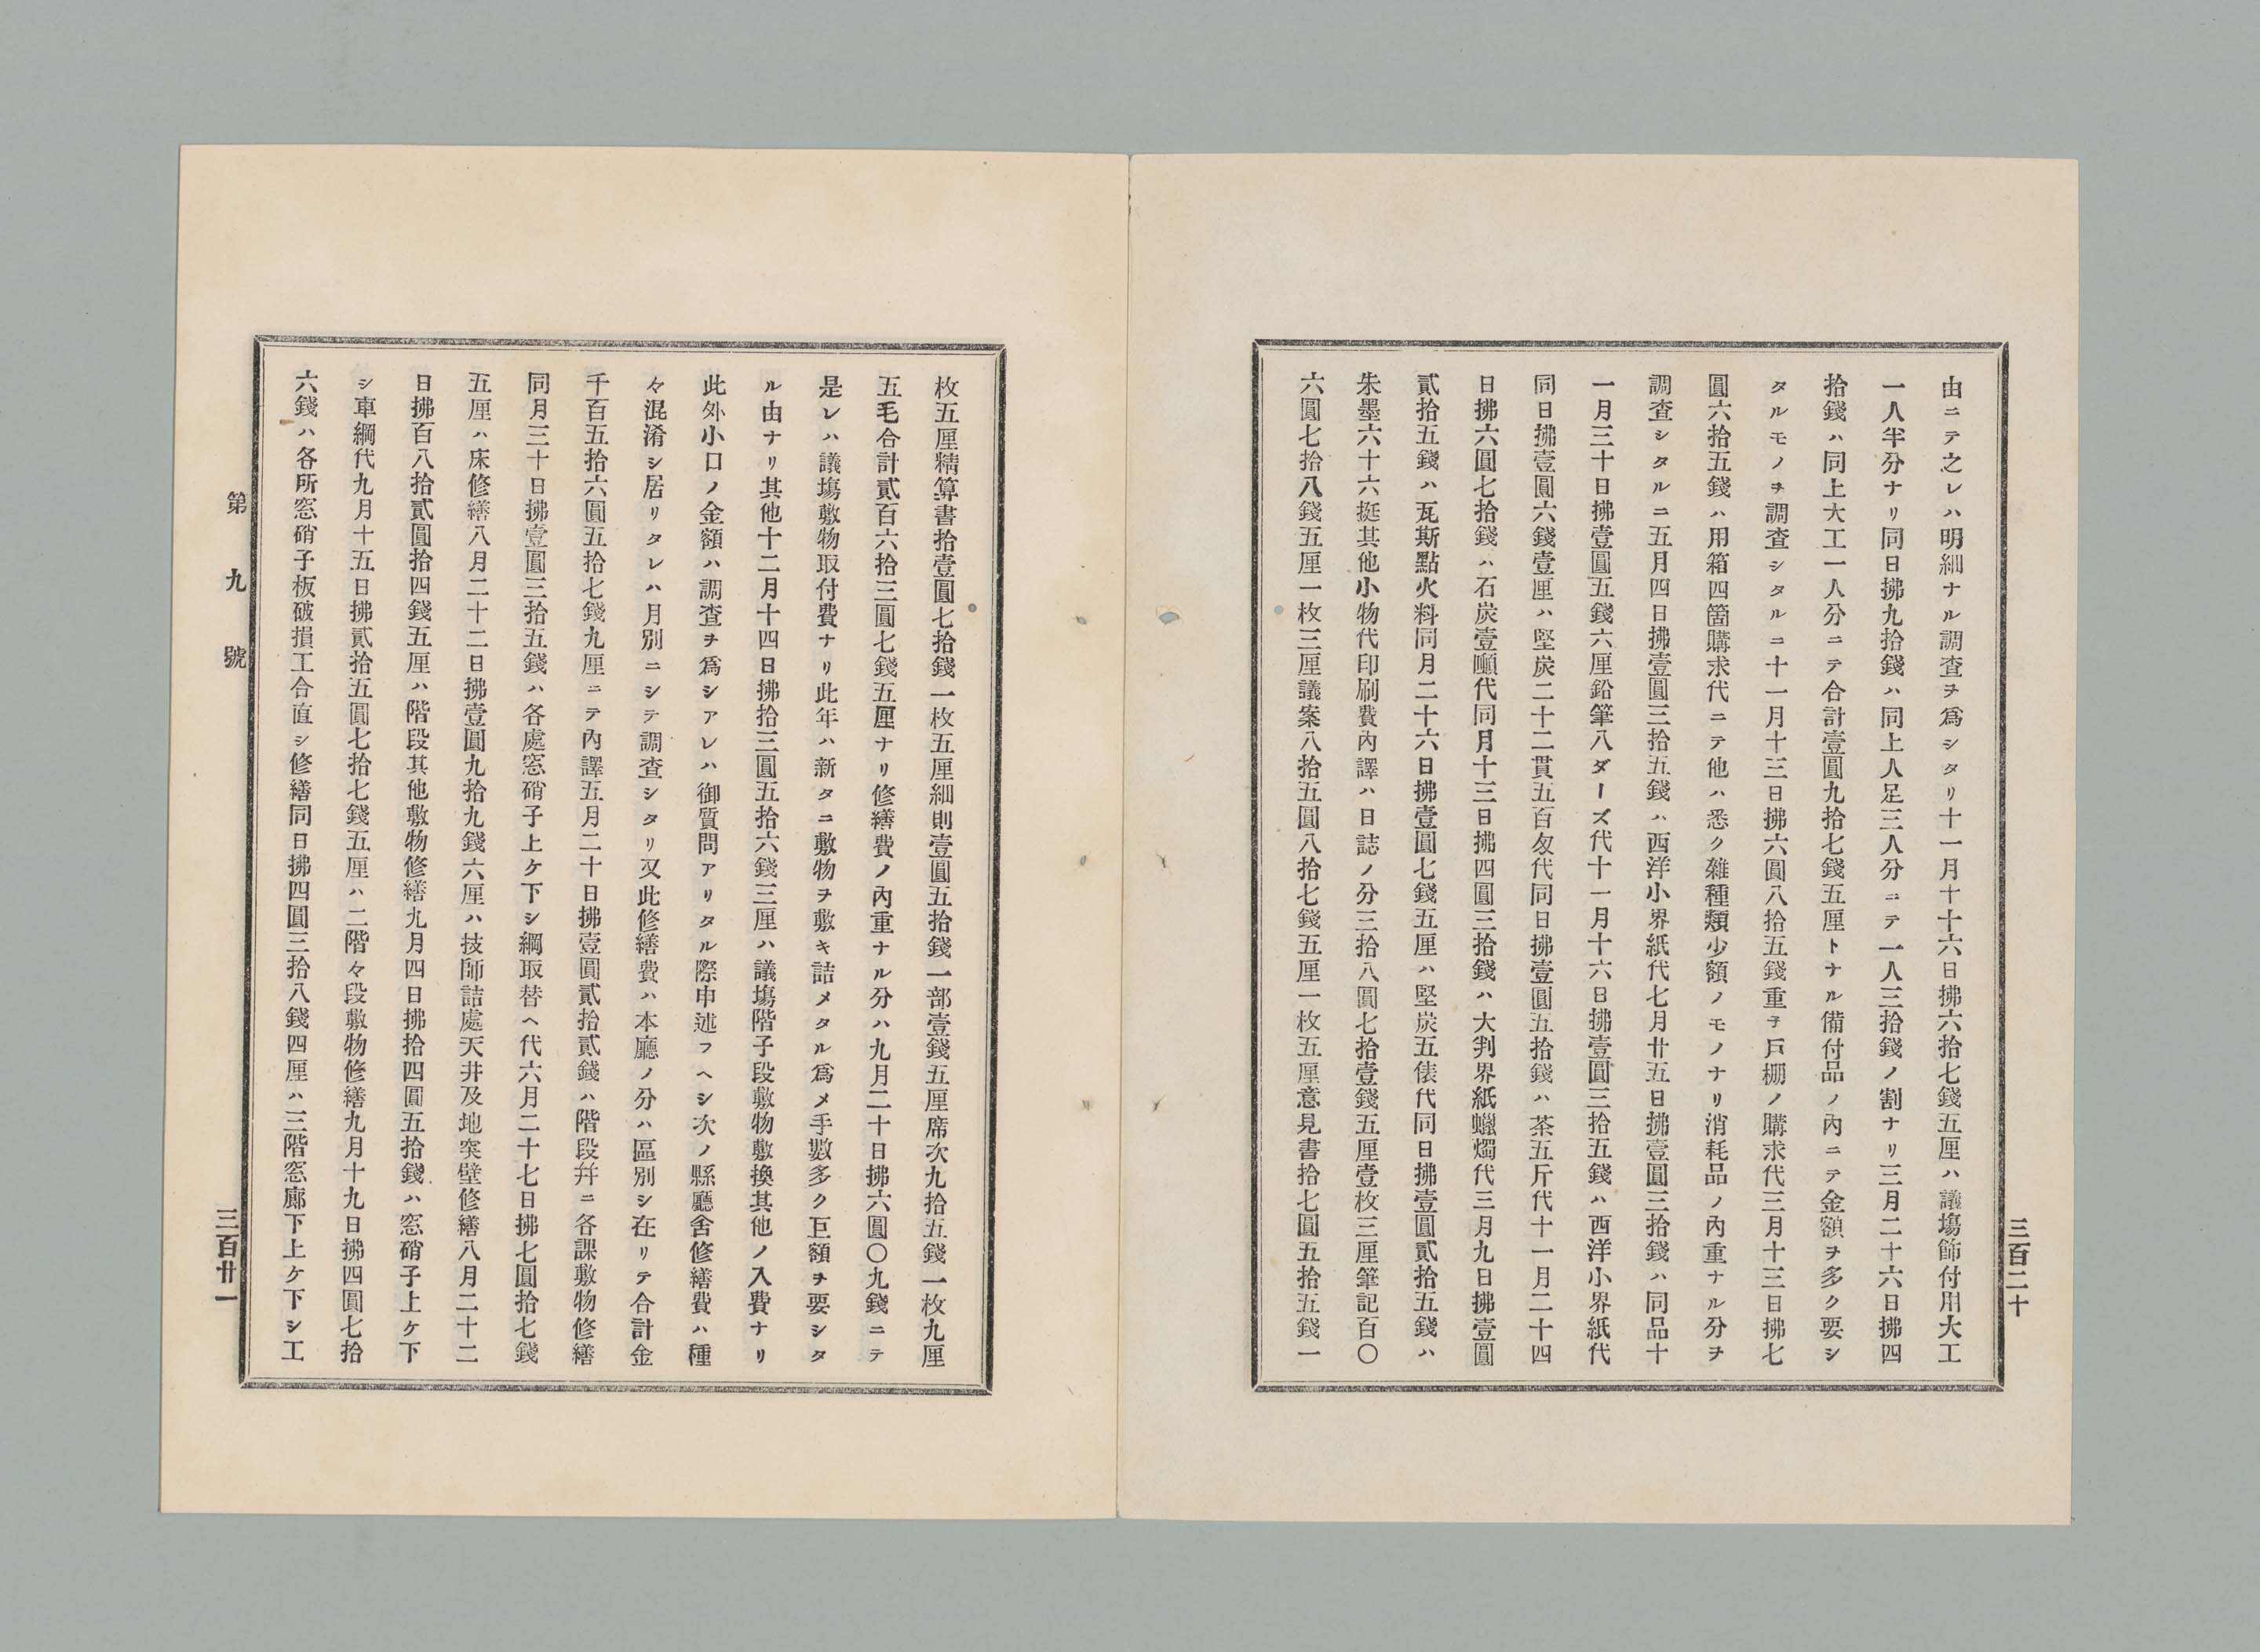 三百二十
由ニテ之レハ明細ナル調査ヲ爲シタリ十一月十十六日拂六拾七錢五厘ハ議塲飾付用大工
一人半分ナリ同日拂九拾錢ハ同上人足三人分ニテ一人三拾錢ノ割ナリ三月二十六日拂四
拾錢ハ同上大工一人分ニテ合計壹圓九拾七錢五厘トナル備付品ノ內ニテ金額ヲ多ク要シ
タルモノヲ調査シタルニ十一月十三日拂六圓八拾五錢重子戶棚ノ購求代三月十三日拂七
圓六拾五錢ハ用箱四箇購求代ニテ他ハ悉ク雜種類少額ノモノナリ消耗品ノ內重ナル分ヲ
調査シタルニ五月四日拂壹圓三拾五錢ハ西洋小界紙代七月廿五日拂壹圓三拾錢ハ同品十
一月三十日拂壹圓五錢六厘鉛筆八ダーズ代十一月十六日拂壹圓三拾五錢ハ西洋小界紙代
同日拂壹圓六錢壹厘ハ堅炭二十二貫五百匁代同日拂壹圓五拾錢ハ茶五斤代十一月二十四
日拂六圓七拾錢ハ石炭壹噸代同月十三日拂四圓三拾錢ハ大判界紙蠟燭代三月九日拂壹圓
貳拾五錢ハ瓦斯點火料同月二十六日拂壹圓七錢五厘ハ堅炭五俵代同日拂壹圓貳拾五錢ハ
朱墨六十六挺其他小物代印刷費內譯ハ日誌ノ分三拾八圓七拾壹錢五厘壹枚三厘筆記百〇
六圓七拾八錢五厘一枚三厘議案八拾五圓八拾七錢五厘一枚五厘意見書拾七圓五拾五錢一
枚五厘精算書拾壹圓七拾錢一枚五厘細則壹圓五拾錢一部壹錢五厘席次九拾五錢一枚九厘
五毛合計貳百六拾三圓七錢五厘ナリ修繕費ノ內重ナル分ハ九月二十日拂六圓〇九錢ニテ
是レハ議塲敷物取付費ナリ此年ハ新タニ敷物ヲ敷キ詰メタル爲メ手數多ク巨額ヲ要シタ
ル由ナリ其他十二月十四日拂拾三圓五拾六錢三厘ハ議塲階子段敷物敷換其他ノ入費ナリ
此外小口ノ金額ハ調査ヲ爲シアレハ御質問アリタル際申述フヘシ次ノ縣廳舍修繕費ハ種
々混淆シ居リタレハ月別ニシテ調査シタリ又此修繕費ハ本廳ノ分ハ區別シ在リテ合計金
千百五拾六圓五拾七錢九厘ニテ內譯五月二十日拂壹圓貳拾貳錢ハ階段幷ニ各課敷物修繕
同月三十日拂壹圓三拾五錢ハ各處窓硝子上ケ下シ綱取替ヘ代六月二十七日拂七圓拾七錢
五厘ハ床修繕八月二十二日拂壹圓九拾九錢六厘ハ技師詰處天井及地突壁修繕八月二十二
日拂百八拾貳圓拾四錢五厘ハ階段其他敷物修繕九月四日拂拾四圓五拾錢ハ窓硝子上ケ下
シ車綱代九月十五日拂貳拾五圓七拾七錢五厘ハ二階々段敷物修繕九月十九日拂四圓七拾
六錢ハ各所窓硝子板破損工合直シ修繕同日拂四圓三拾八錢四厘ハ三階窓廊下上ケ下シ工
第九號
三百廿一